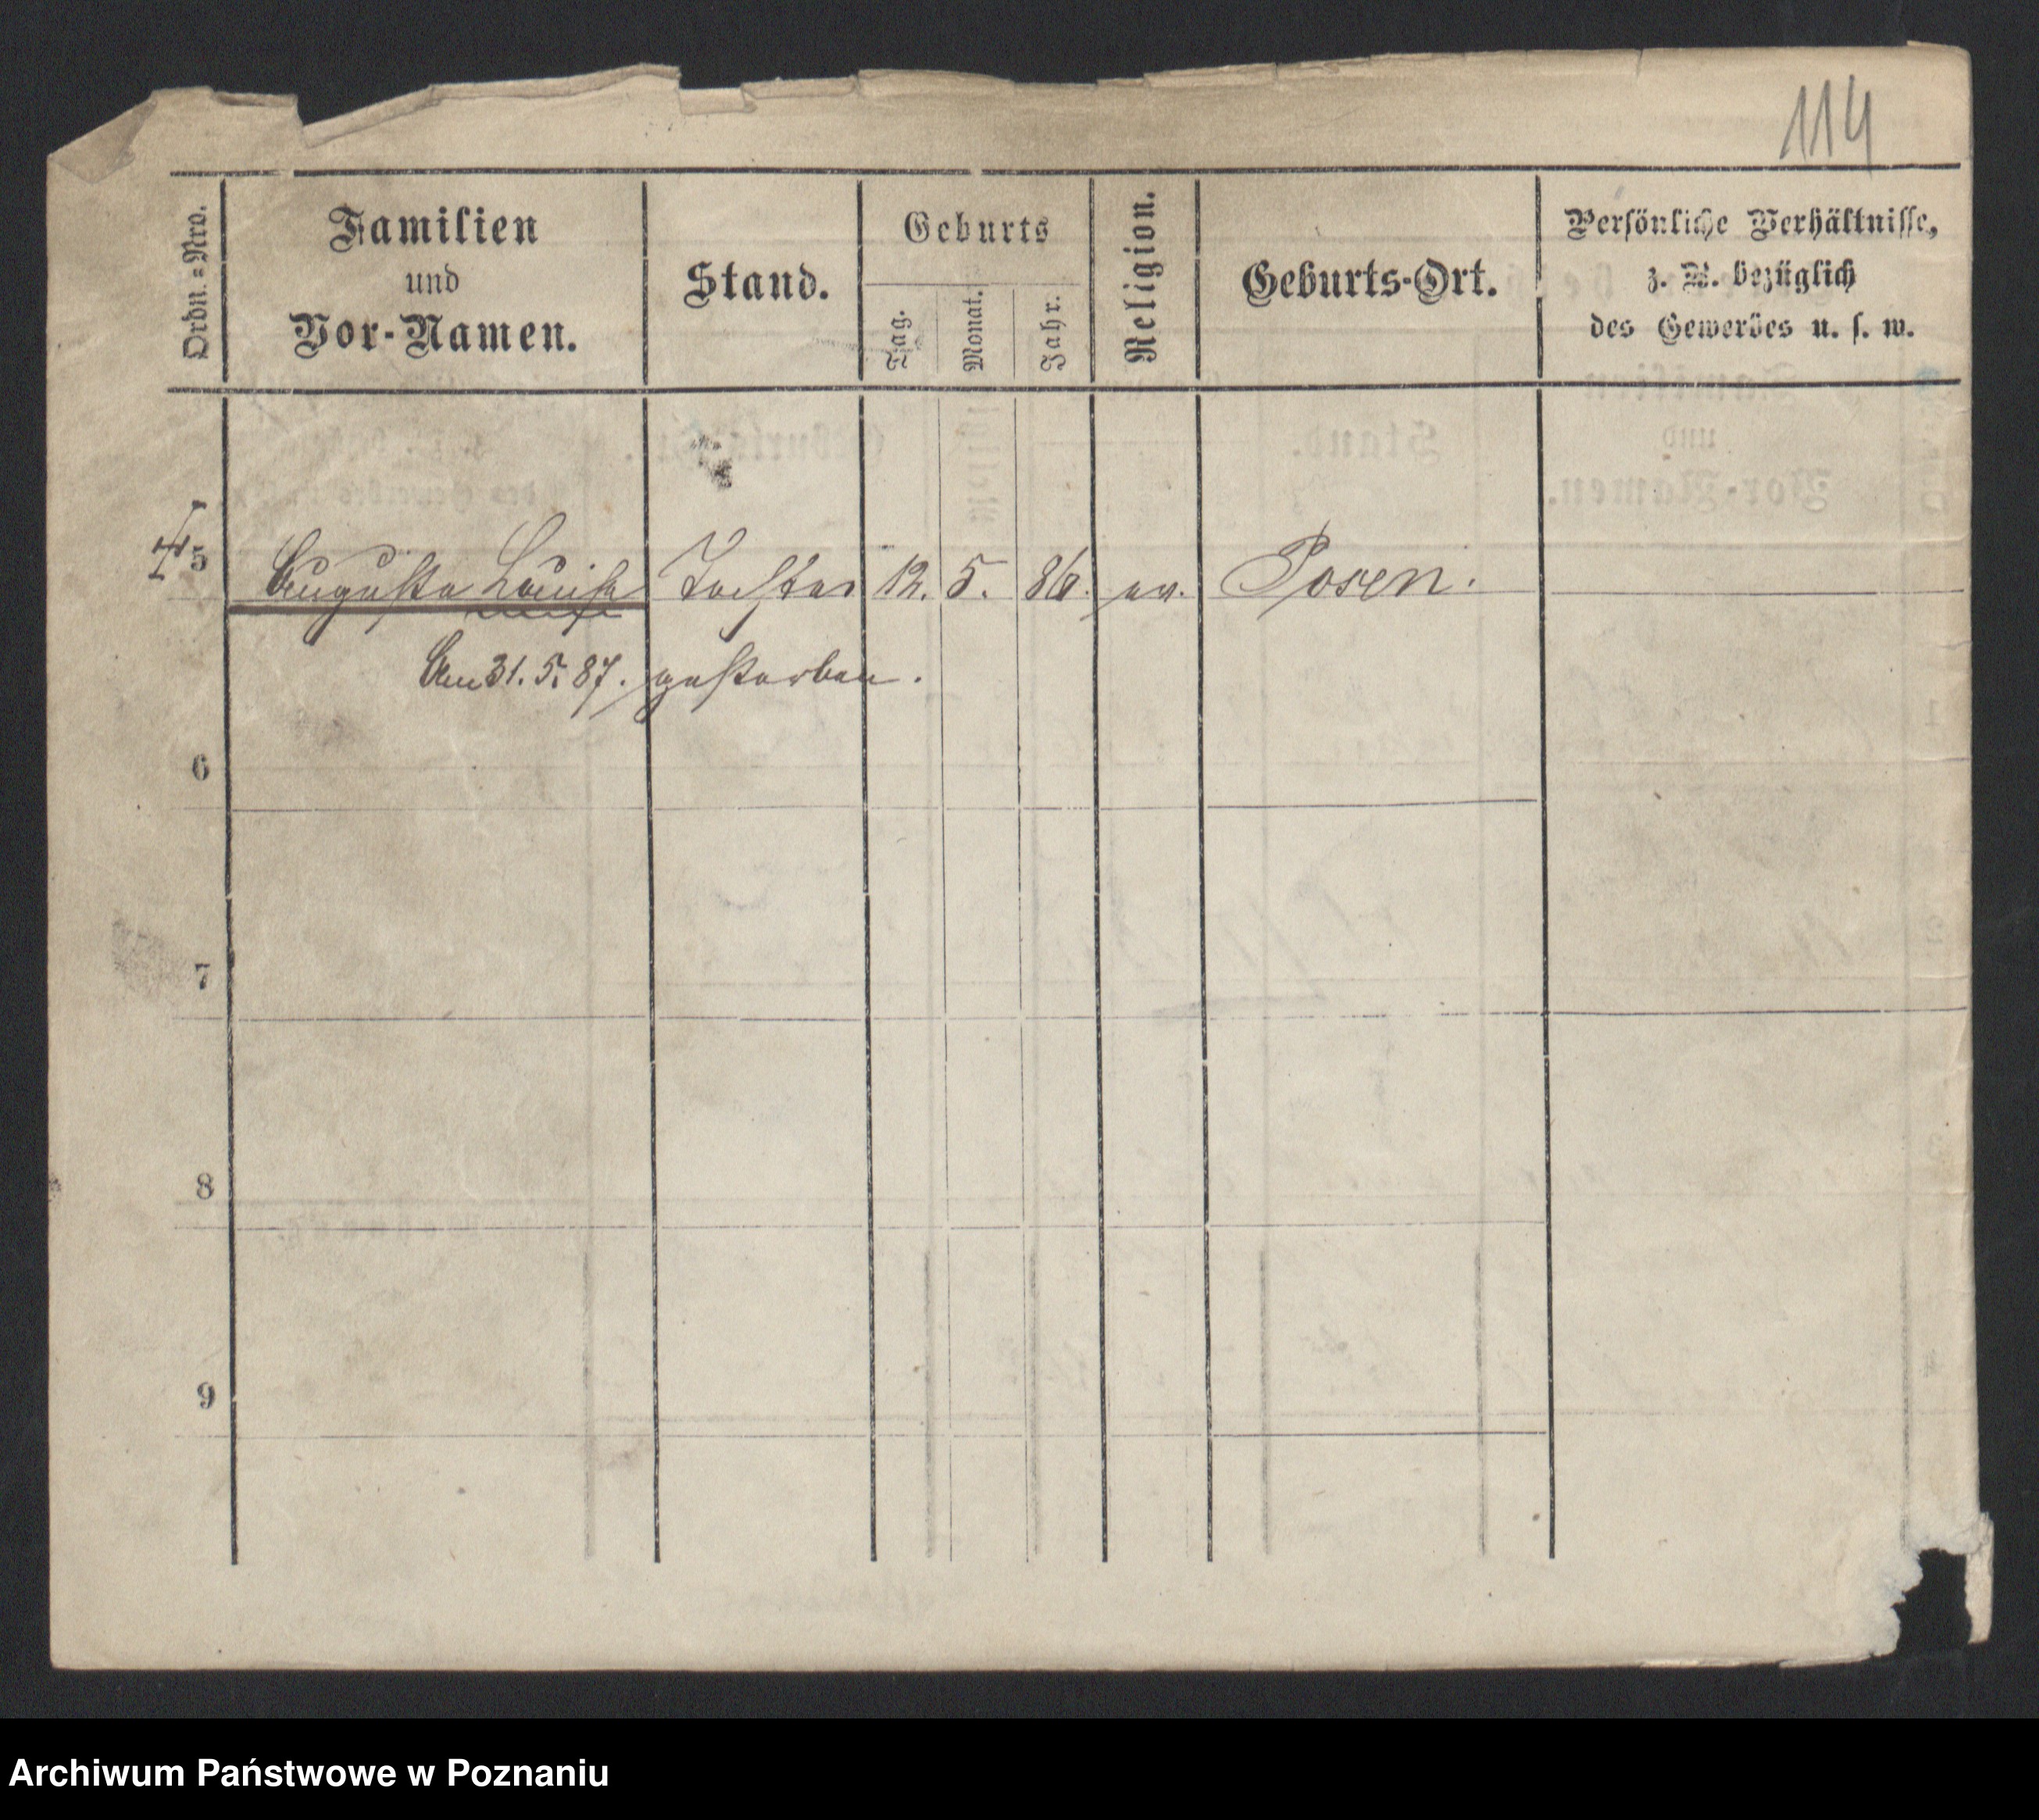 114
Ordn.=Nro.
Familien
und
Vor-Namen.
Stand.
Geburts
Tag.
Monat.
Jahr.
Religion.
Geburts-Ort.
Persönliche Verhältnisse,
z. B. bezüglich
des Gewerbes u. s. w.
5 Auguste Louise Tochter 12. 5. 86. ev. Posen.
Am 31. 5. 87. gestorben.
6
7
8
9
Archiwum Państwowe w Poznaniu